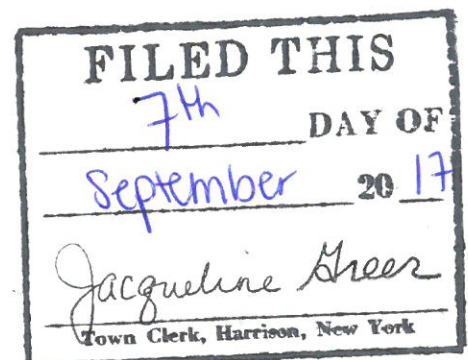 FILED THIS
7th DAY OF
September 20 17
Jacqueline Greer
Town Clerk, Harrison, New York